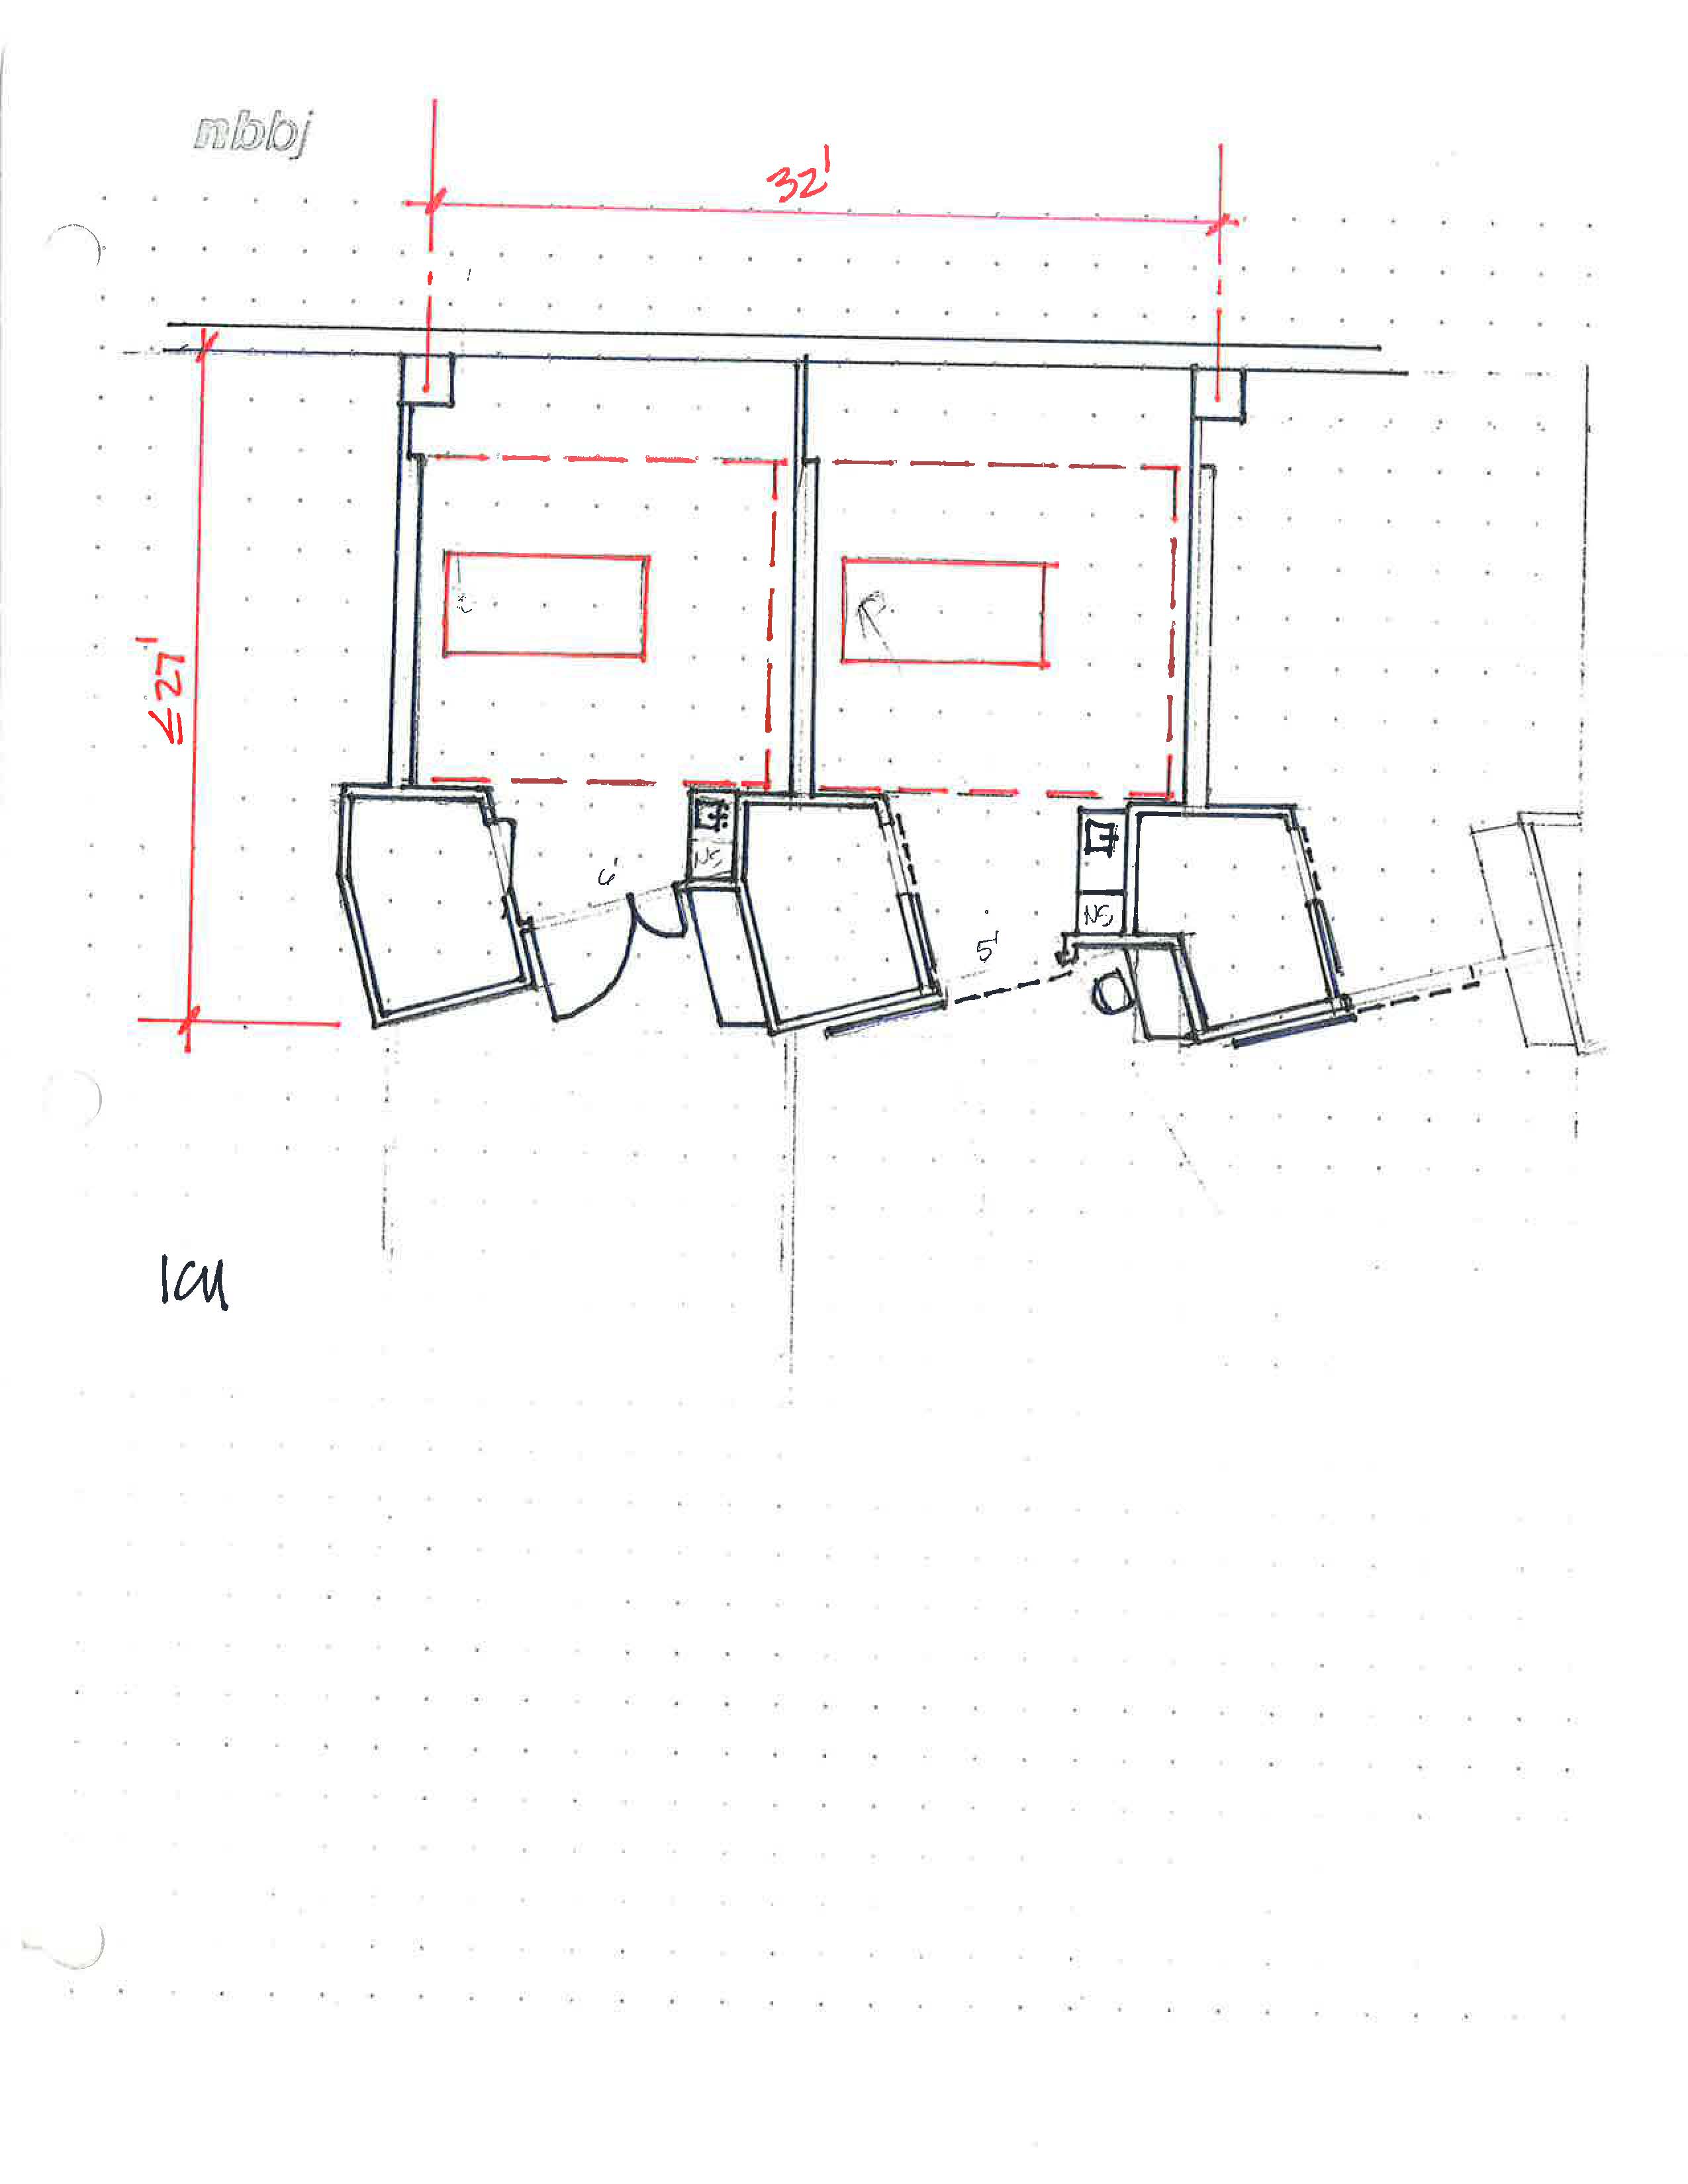 nbbj
32'
≤27'
6'
NS
NS
5'
ICU